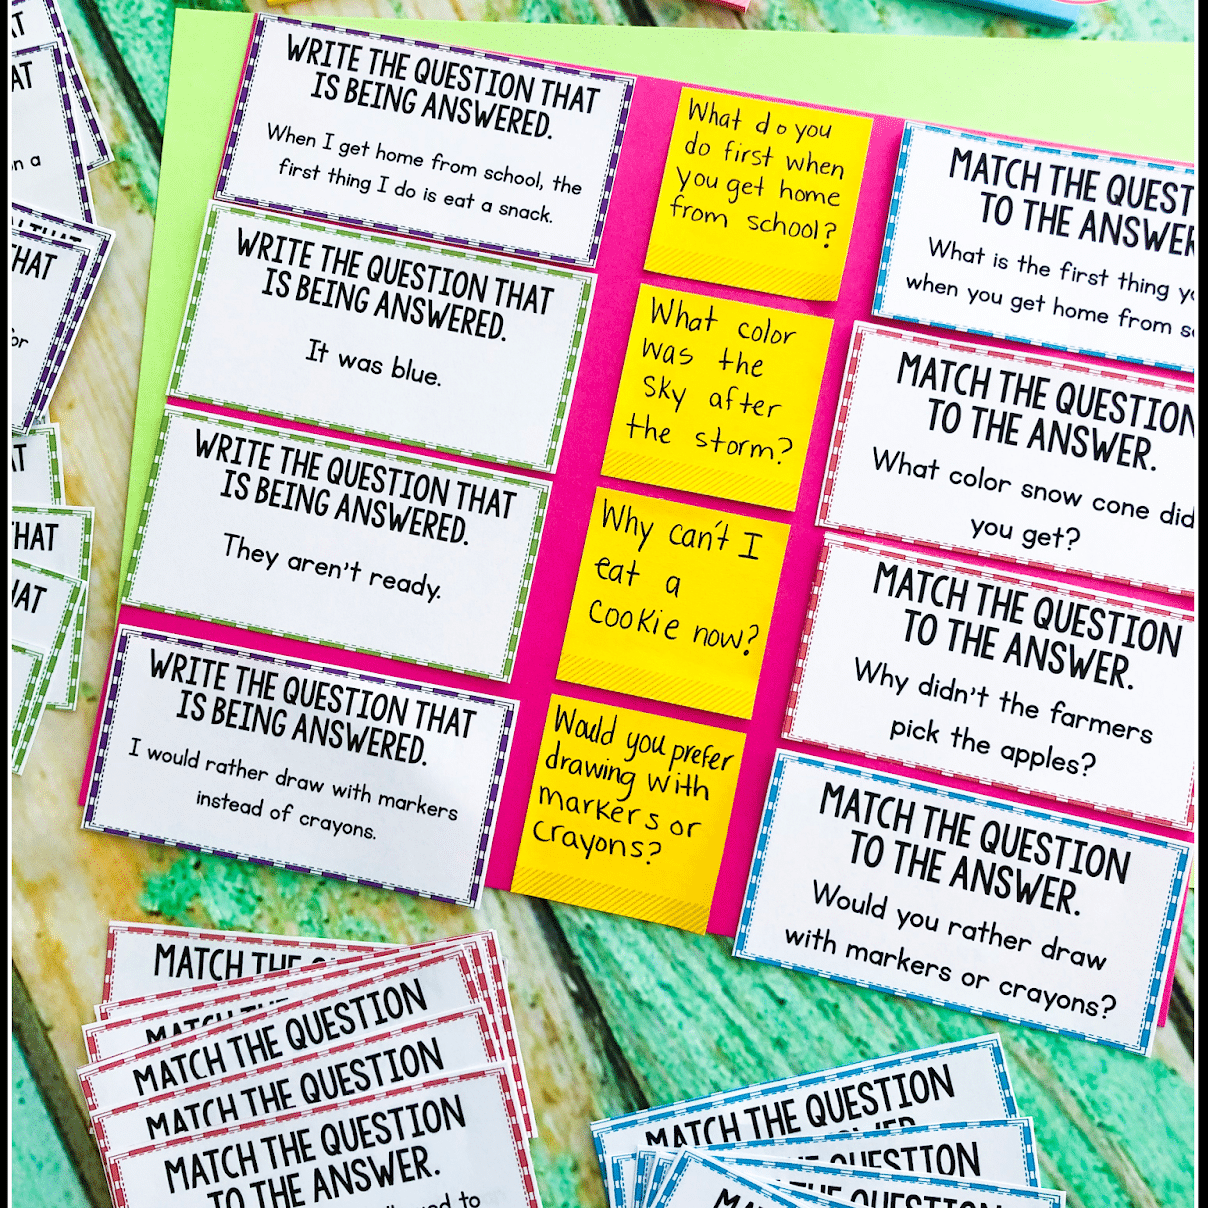 WRITE THE QUESTION THAT
IS BEING ANSWERED.
When I get home from school, the
first thing I do is eat a snack.
What do you
do first when
you get home
from school?
MATCH THE QUEST
TO THE ANSWER
What is the first thing
when you get home from
WRITE THE QUESTION THAT
IS BEING ANSWERED.
It was blue.
What color
was the
sky after
the storm?
MATCH THE QUESTION
TO THE ANSWER.
What color snow cone did
you get?
WRITE THE QUESTION THAT
IS BEING ANSWERED.
They aren't ready.
Why can't I
eat a
cookie now?
MATCH THE QUESTION
TO THE ANSWER.
Why didn't the farmers
pick the apples?
WRITE THE QUESTION THAT
IS BEING ANSWERED.
I would rather draw with markers
instead of crayons.
Would you prefer
drawing with
markers or
crayons?
MATCH THE QUESTION
TO THE ANSWER.
Would you rather draw
with markers or crayons?
AT
n a
THAT
HAT
or
HAT
HAT
MATCH THE
MATCH THE
MATCH THE QUESTION
MATCH THE QUESTION
MATCH THE QUESTION
TO THE ANSWER.
to
MATCH THE QUESTION
QUESTION
QUESTION